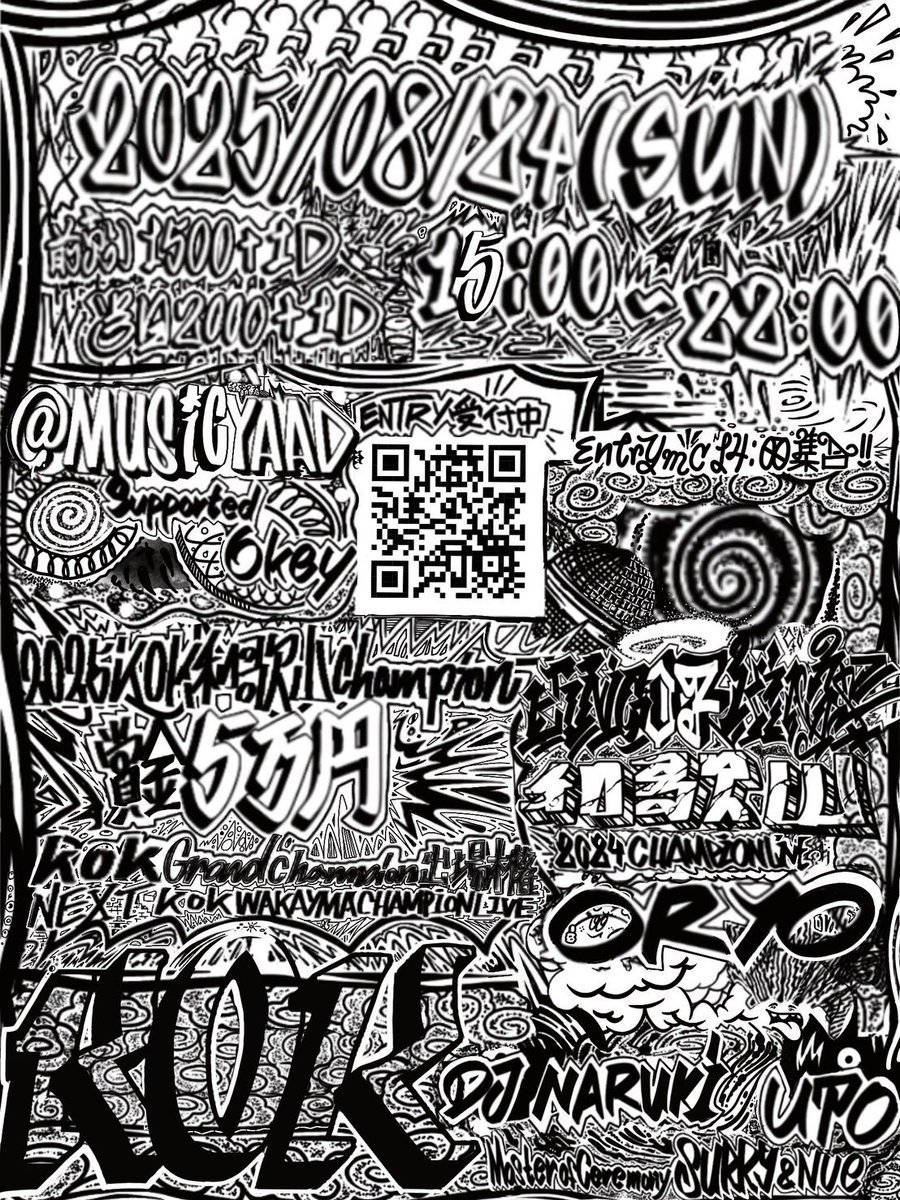 2025/08/24(SUN)
前売り1500+1D
15:00~22:00
当日2000+1D
@MUSICYAAD
ENTRY受付中
EntrYmC 14:00集合!!
Supported
Okey
2025KOK和歌山Champion
賞金5万円
KING OF KINGS
和歌山
2024 CHAMPION LIVE
KOK Grand Champion出場権
NEXT KOK WAKAYMA CHAMPION LIVE
ORYO
KOK
DJ NARUKI
UPO
Master of Ceremony SURRY & NUE